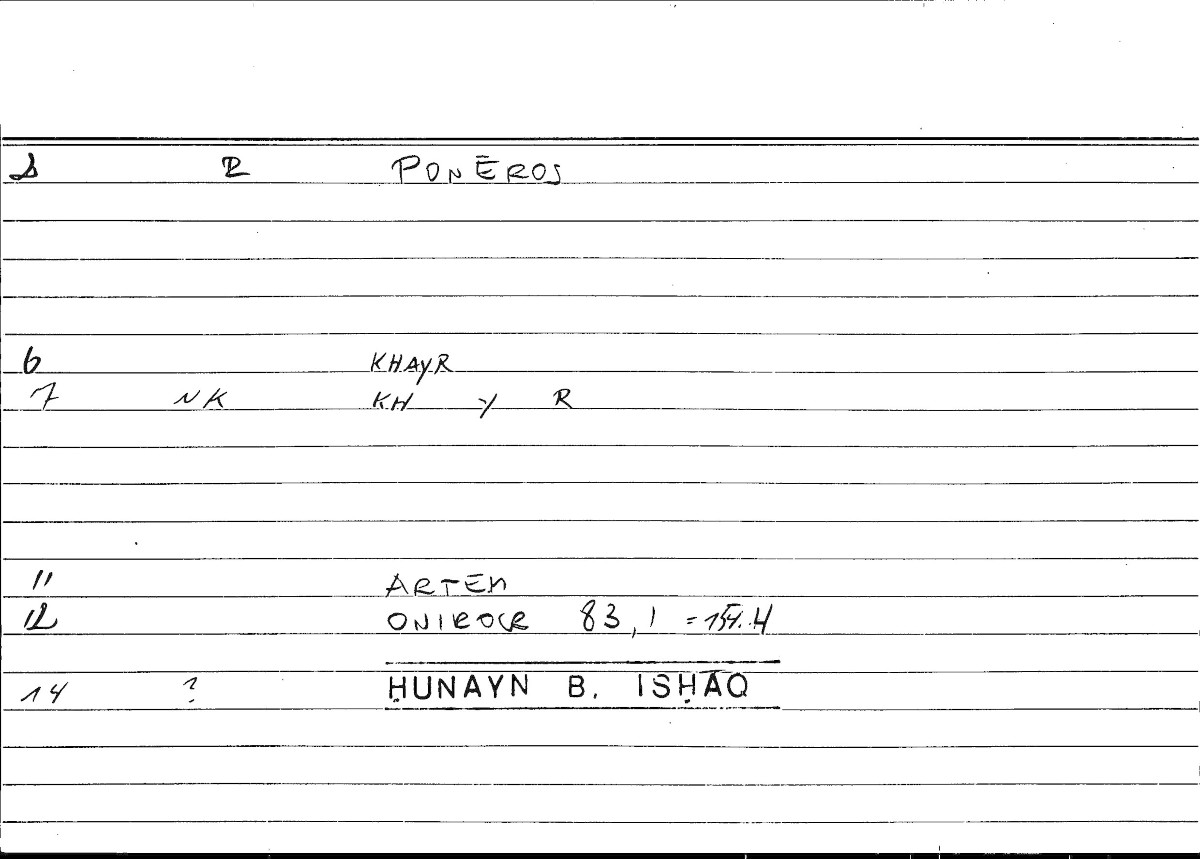 1 R PONĒROS
6 KHAYR
7 NK KH Y R
11 ARTEM
12 ONIROCR 83,1 =154.4
14 ? ḤUNAYN B. ISḤĀQ